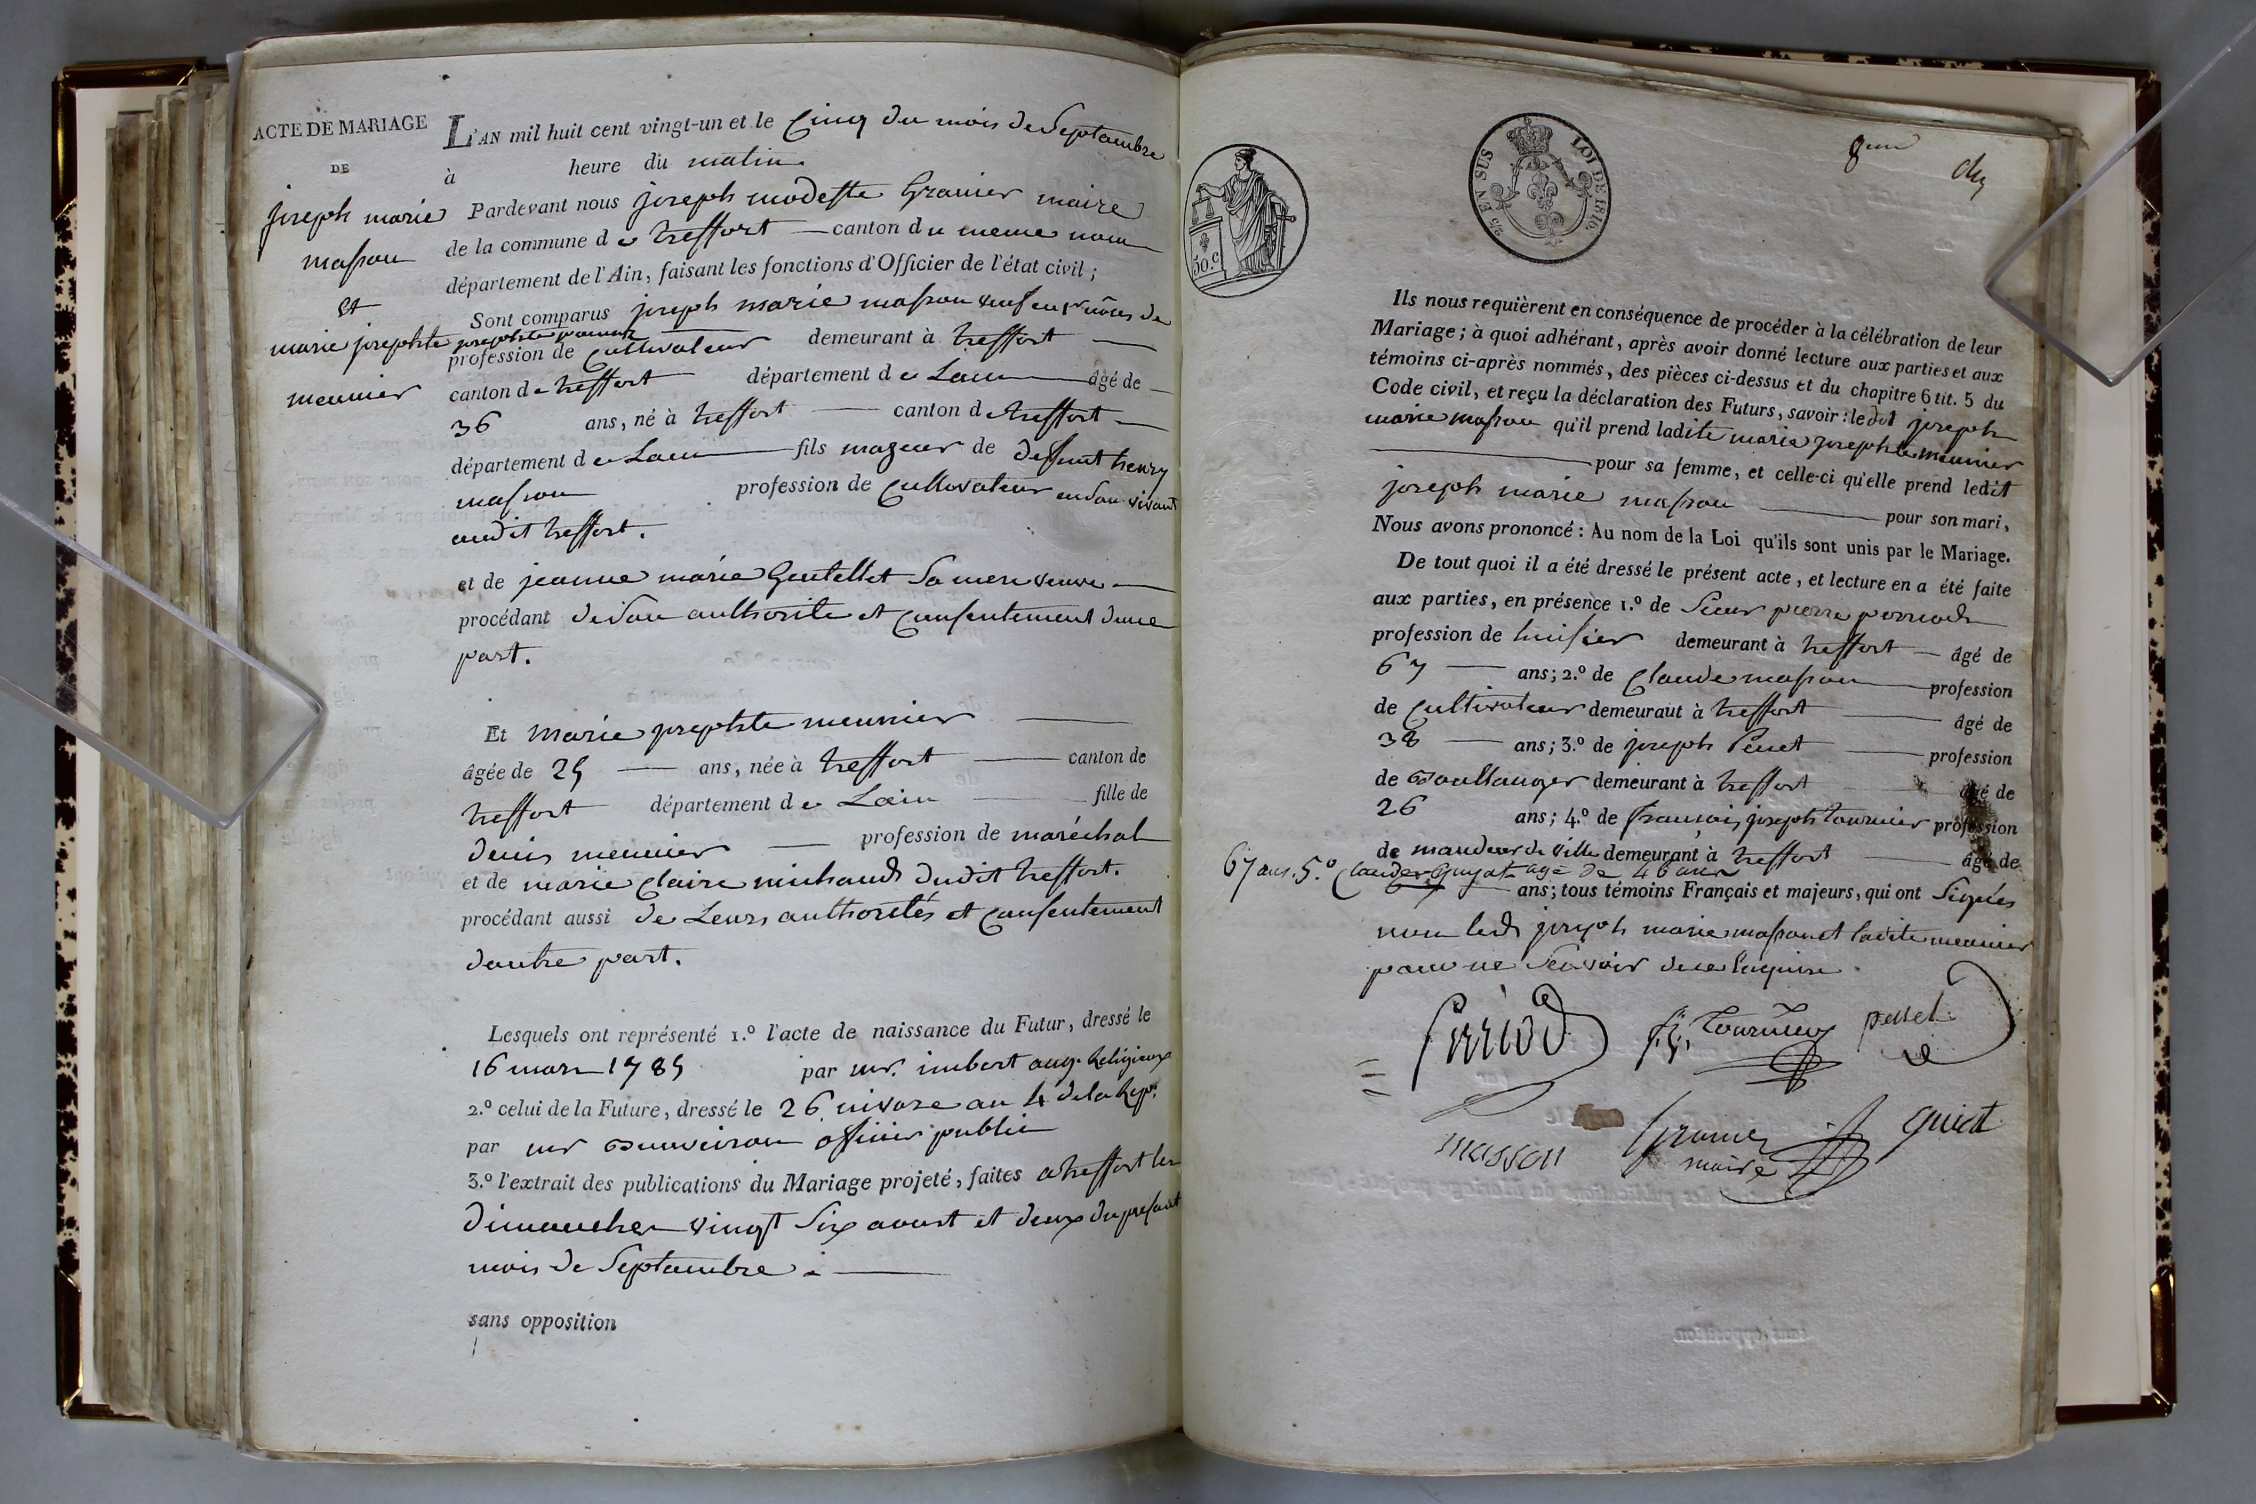 ACTE DE MARIAGE
DE
joseph marie
masson
et
marie josephte
meunier
L'AN mil huit cent vingt-un et le Cinq du mois de Septambre
à heure du matin
Pardevant nous joseph modeste Granier maire
de la commune de treffort canton du meme nom
département de l'Ain, faisant les fonctions d'Officier de l'état civil;
Sont comparus joseph marie masson veuf en 1r nôces de
josephte
profession de Cultivateur demeurant à treffort
canton de treffort département de Lain âgé de
36 ans, né à treffort canton de treffort
département de Lain fils mageur de deffunt henry
masson profession de Cultivateur en son vivant
audit treffort.
et de jeanne marie Gentellet Sa mere veuve
procédant de son authorité et Consentement dune
part.
Et marie josephte meunier
âgée de 25 ans, née à treffort canton de
treffort département de Lain fille de
denis meunier profession de maréchal
et de marie Claire michaud dudit treffort.
procédant aussi de Leurs authorités et Consentement
dautre part.
Lesquels ont représenté 1.º l'acte de naissance du Futur, dressé le
16 mars 1785 par mr. imbert aug. Religieux
2.º celui de la Future, dressé le 26 nivose an 4 de la Rep.
par mr officier public
3.º l'extrait des publications du Mariage projeté, faites a treffort les
dimanches vingt Six aoust et deux du present
mois de Septambre
sans opposition
50.C
25 EN SUS
LOI DE 1816.
Ils nous requièrent en conséquence de procéder à la célébration de leur
Mariage; à quoi adhérant, après avoir donné lecture aux parties et aux
témoins ci-après nommés, des pièces ci-dessus et du chapitre 6 tit. 5 du
Code civil, et reçu la déclaration des Futurs, savoir: le dit joseph
marie masson qu'il prend ladite marie josephte meunier
pour sa femme, et celle-ci qu'elle prend ledit
joseph marie masson pour son mari,
Nous avons prononcé: Au nom de la Loi qu'ils sont unis par le Mariage.
De tout quoi il a été dressé le présent acte, et lecture en a été faite
aux parties, en présence 1.º de Sieur pierre perriod
profession de huissier demeurant à treffort âgé de
67 ans; 2.º de Claude masson profession
de Cultivateur demeurant à treffort âgé de
38 ans; 3.º de joseph Penet profession
de Boullanger demeurant à treffort âgé de
26 ans; 4.º de francois joseph tournier profession
de mandeur de ville demeurant à treffort âgé de
67 ans. 5.º Claude Guyat age de 46 ans
ans; tous témoins Français et majeurs, qui ont Signés
non led joseph marie masson et ladite meunier
pour ne Scavoir de ce Enquire
Perriod
f. j. Tournier
penet
masson
Granier
maire
guiat